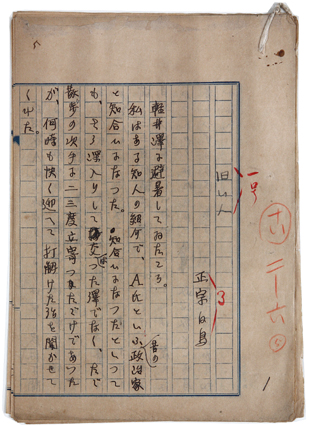 一号
二一六
3
旧い人
正宗白鳥
軽井澤に避暑してゐたころ。
私はある知人の紹介で、A氏といふ昔の政治家
と知合ひになつた。知合ひになつたといつて
も、さう深入りして交つた譯でなく、たゞ
散歩の次手に二三度立寄つたゞけであつた
が、何時も快く迎へて打解けた話を聞かせて
くれた。